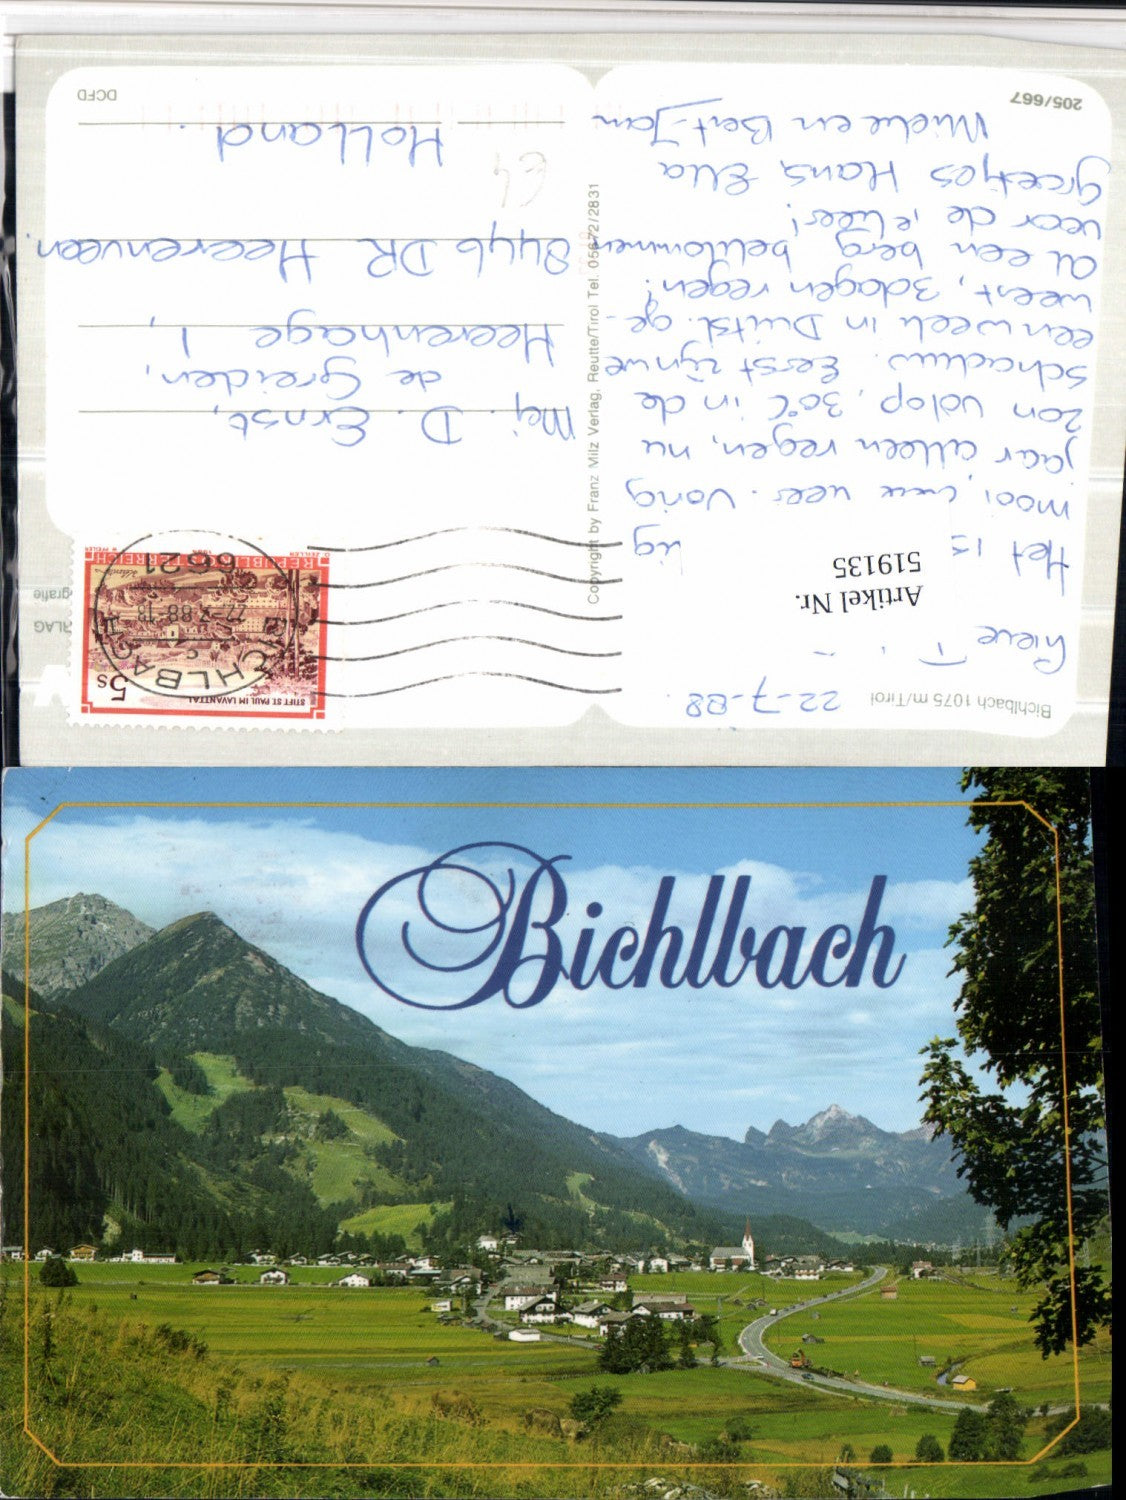 Bichlbach 1075 m/Tirol
22-7-88.
Lieve T
Artikel Nr.
519135
Het is
mooi, weer. Vorig
jaar alleen regen, nu
zon volop, 30°C in de
schaduw. Eerst zijn we
een week in Duitsl. ge-
weest, 3 dagen regen!
Al een berg beklommen
voor de
groetjes Hans, Ella
Mieke en Bert-Jan
205/667
Copyright by Franz Milz Verlag, Reutte/Tirol Tel. 05672/2831
STIFT ST. PAUL IM LAVANTTAL
5s
REPUBLIK ÖSTERREICH
BICHLBACH
22.-7.88-18
6621
Mej. D. Ernst,
de Greiden,
Heerenhage 1,
8446 DR Heerenveen.
Holland.
DCFD
Bichlbach